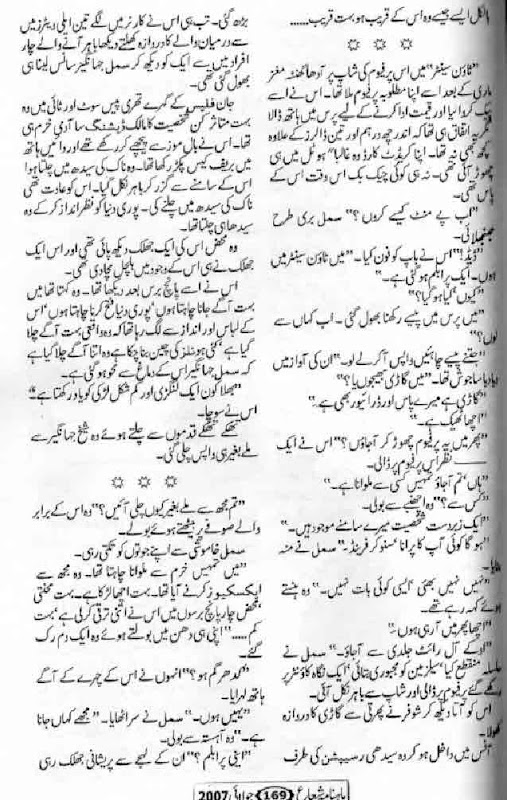 بالکل ایسے جیسے وہ اس کے قریب ہو بہت قریب......
☼ ☼ ☼
"ٹاؤن سینٹر" میں اس پرفیوم کی شاپ پر آدھا گھنٹہ مغز
ماری کے بعد اسے اپنا مطلوبہ پرفیوم ملا تھا۔ اس نے اسے
پیک کروایا اور قیمت ادا کرنے کے لیے پرس میں ہاتھ ڈالا
اتفاق ہی تھا کہ اندر چھ درہم اور تین ڈالرز کے علاوہ
کچھ بھی نہ تھا۔ اپنا کریڈٹ کارڈ وہ غالباً ہوٹل میں ہی
چھوڑ آئی تھی۔ نہ ہی کوئی چیک بک اس وقت اس کے
پاس تھی۔
"اب پے منٹ کیسے کروں؟" سمل بری طرح
جھنجلائی۔
"ڈیڈ!" اس نے باپ کو فون کیا۔ "میں ٹاؤن سینٹر میں
ہوں۔ ایک پرابلم ہو گئی ہے۔"
"کیوں، کیا ہو گیا؟"
"میں پرس میں پیسے رکھنا بھول گئی۔ اب کہاں سے
لوں؟"
"جتنے پیسے چاہئیں واپس آ کر لے لو۔" ان کی آواز میں
دبا دبا سا جوش تھا۔ "میں گاڑی بھیجوں یا؟"
"گاڑی ہے میرے پاس اور ڈرائیور بھی ہے۔"
"اچھا ٹھیک ہے۔"
"پھر میں یہ پرفیوم چھوڑ کر آجاؤں؟" اس نے ایک
نظر اس پرفیوم پر ڈالی۔
"ہاں تم آجاؤ تمہیں کسی سے ملوانا ہے۔"
"کس سے؟" وہ اچنبھے سے بولی۔
"ایک زبردست شخصیت میرے سامنے موجود ہیں۔"
"ہو گا کوئی آپ کا پرانا سنوکر فرینڈ۔" سمل نے منہ
بنایا۔
"نہیں نہیں بھئی، ایسی کوئی بات نہیں۔" وہ ہنستے
ہوئے کہہ رہے تھے۔
"اچھا پھر میں آ رہی ہوں۔"
"او کے آل رائٹ جلدی سے آجاؤ۔" سمل نے
منقطع کیا، سیلزمین کو مجبوری بتائی، ایک نگاہ کاؤنٹر پر
رکھے گئے پرفیوم پر ڈالی اور شاپ سے باہر نکل آئی۔
اس کو آتا دیکھ کر شوفر نے پھرتی سے گاڑی کا دروازہ
کھولا۔
آفس میں داخل ہو کر وہ سیدھی ریسیپشن کی طرف
بڑھ گئی۔ تب ہی اس نے کارنر میں لگے تین ایلی ویٹرز میں
سے درمیان والے کا دروازہ کھلتے دیکھا باہر آنے والے چار
افراد میں سے ایک کو دیکھ کر سمل جہانگیر سانس لینا ہی
بھول گئی تھی۔
جان فلپس کے گہرے تھری پیس سوٹ اور ٹائی میں وہ
بہت متاثر کن شخصیت کا مالک ڈیشنگ سا آدمی خرم ہی
تھا۔ اس نے بال موز سے پیچھے کر رکھے تھے اور دائیں ہاتھ
میں بریف کیس پکڑ رکھا تھا۔ وہ ناک کی سیدھ میں چلتا ہوا
اس کے سامنے سے گزر کر باہر نکل گیا۔ اس کو عادت تھی
ناک کی سیدھ میں چلنے کی۔ پوری دنیا کو نظر انداز کر کے وہ
سیدھا ہی چلتا تھا۔
وہ محض اس کی ایک جھلک دیکھ پائی تھی اور اس ایک
جھلک نے ہی اس کے وجود میں ہلچل مچا دی تھی۔
اس نے اسے پانچ برس بعد دیکھا تھا۔ وہ کہتا تھا میں
بہت آگے جانا چاہتا ہوں، پوری دنیا فتح کرنا چاہتا ہوں، اس
کے لباس اور انداز سے لگ رہا تھا کہ وہ واقعی بہت آگے چلا
گیا ہے، کئی ہوٹلز کی چین بنا چکا ہے وہ اتنا آگے چلا گیا ہے
کہ سمل جہانگیر اس کے دماغ سے محو ہو گئی ہے۔
"بھلا کون ایک لنگڑی اور کم شکل لڑکی کو یاد رکھتا ہے"
اس نے سوچا۔
تھکے تھکے قدموں سے چلتے ہوئے وہ شیخ جہانگیر سے
ملے بغیر ہی واپس چلی گئی۔
☼ ☼ ☼
"تم مجھ سے ملے بغیر کیوں چلی آئیں؟" وہ اس کے برابر
والے صوفے پر بیٹھتے ہوئے بولے۔
سمل خاموشی سے اپنے جوتوں کو تکتی رہی۔
"میں تمہیں خرم سے ملوانا چاہتا تھا۔ وہ مجھ سے
ایکسکیوز کرنے آیا تھا۔ بہت اچھا لڑکا ہے۔ بہت محنتی
محض چار پانچ برسوں میں اس نے اتنی ترقی کر لی ہے، بہت
کم......" اپنی ہی دھن میں بولتے ہوئے وہ ایک دم رک
گئے۔
"کدھر گم ہو؟" انہوں نے اس کے چہرے کے آگے
ہاتھ لہرایا۔
"یہیں ہوں۔" سمل نے سر اٹھایا۔ "مجھے کہاں جانا
ہے۔" وہ آہستہ سے بولی۔
"اینی پرابلم؟" ان کے لہجے سے پریشانی جھلک رہی
ماہنامہ شعاع 169 جولائی 2007